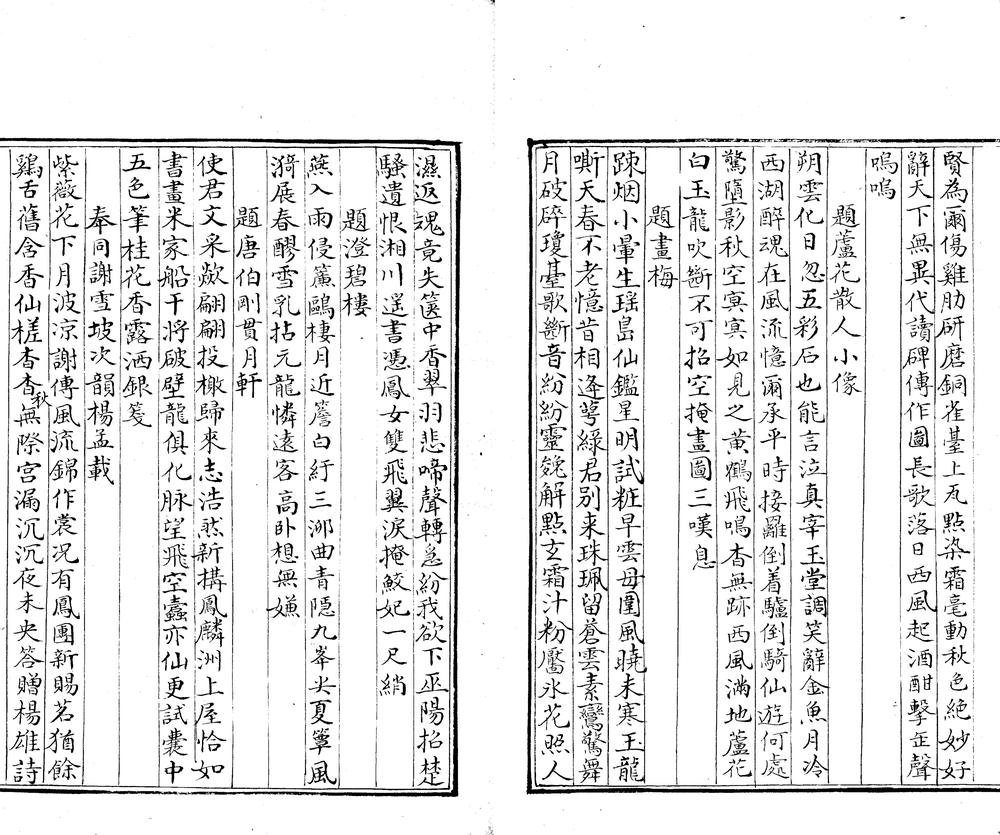 賢為爾傷雞肋研磨銅雀臺上瓦點染霜毫動秋色絕妙好
辭天下無異代讀碑傳作圖長歌落日西風起酒酣擊缶聲
嗚嗚
題蘆花散人小像
朔雲化日忽五彩石也能言泣真宰玉堂調笑辭金魚月冷
西湖醉魂在風流憶爾承平時接䍦倒着驢倒騎仙遊何處
驚墮影秋空冥冥如見之黃鶴飛鳴杳無跡西風滿地蘆花
白玉龍吹斷不可招空掩畫圖三嘆息
題畫梅
踈烟小暈生瑶島仙鑑星明試粧早雲母圍風曉未寒玉龍
嘶天春不老憶昔相逢萼綠君别来珠珮留蒼雲素鸞驚舞
月破碎瓊臺歌斷音紛紛靈䰟解點玄霜汁粉靨氷花照人
濕返魂竟失篋中香翠羽悲啼聲轉急紛我欲下巫陽招楚
騷遺恨湘川遥書憑鳳女雙飛翼淚掩鮫妃一尺綃
題澄碧樓
燕入雨侵簾鷗棲月近簷白紆三泖曲青隱九峯尖夏簟風
漪展春醪雪乳拈元龍憐遠客高卧想無嫌
題唐伯剛貫月軒
使君文采歘翩翩投檄歸來志浩然新搆鳳麟洲上屋恰如
書畫米家船干將破壁龍俱化脉望飛空蠧亦仙更試囊中
五色筆桂花香露洒銀箋
奉同謝雪坡次韻楊孟載
紫薇花下月波凉謝傅風流錦作裳况有鳳團新賜茗猶餘
鷄舌舊含香仙槎杳杳秋無際宮漏沉沉夜未央答贈楊雄詩